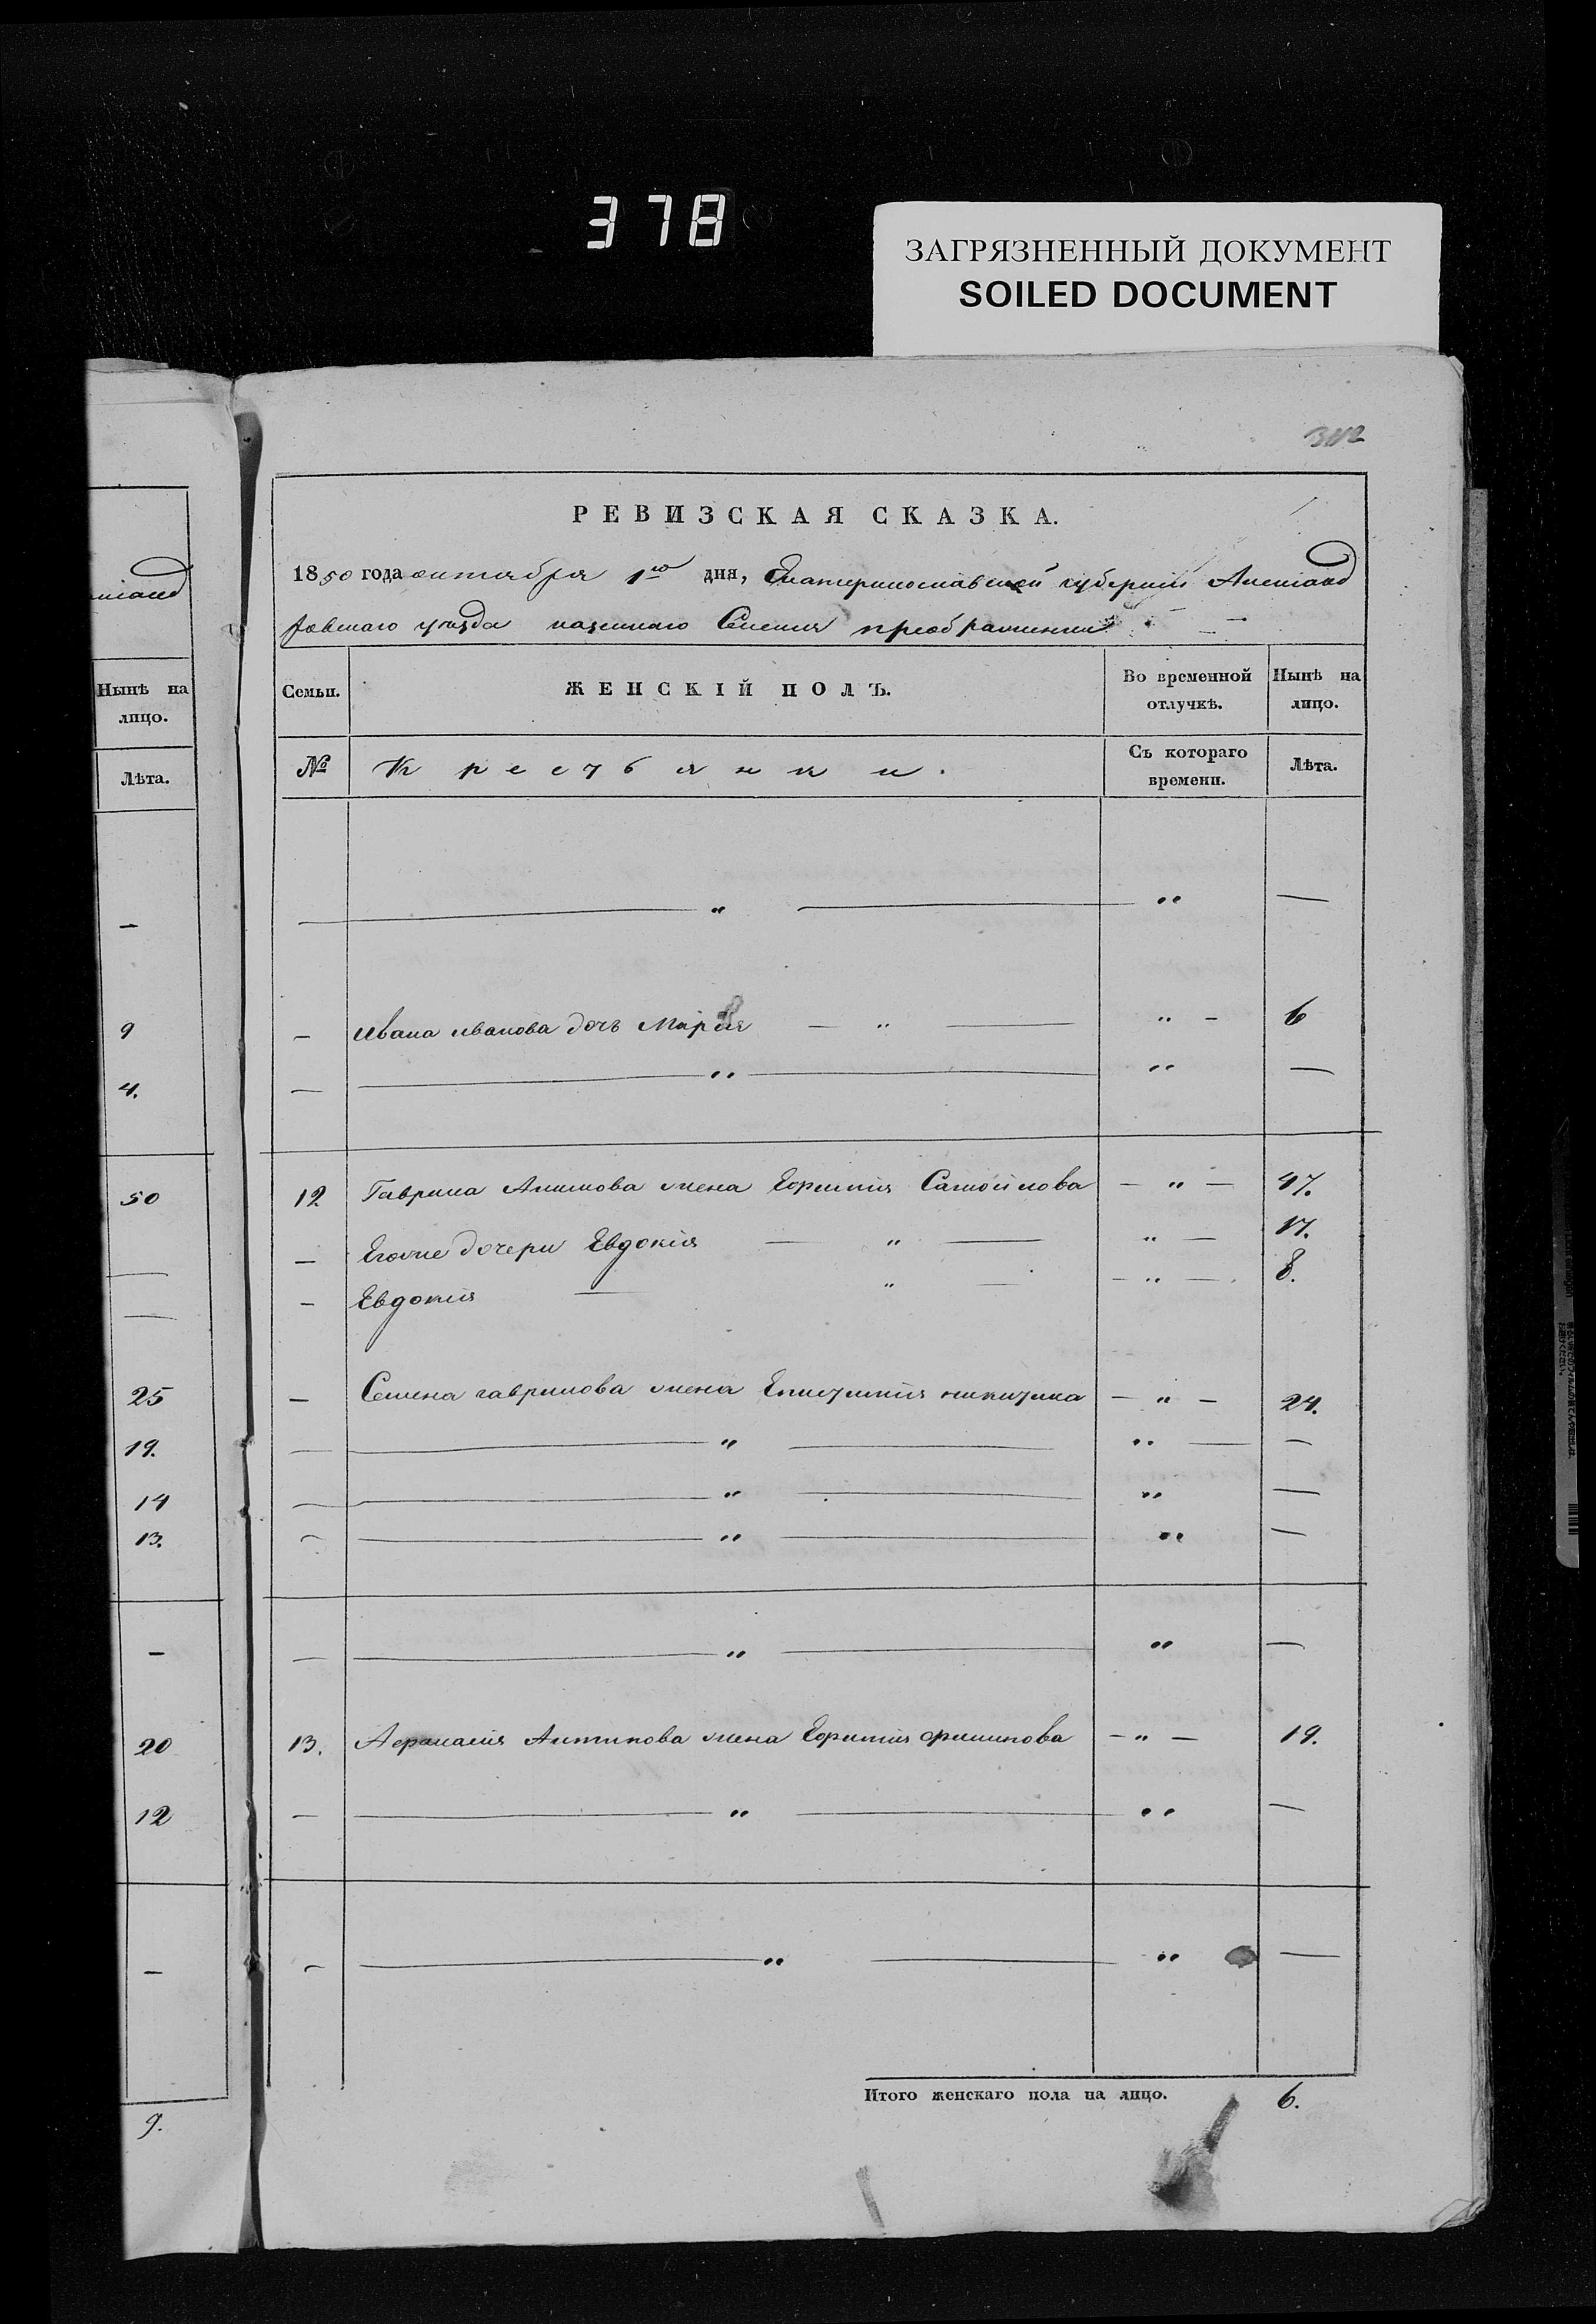 378
ЗАГРЯЗНЕННЫЙ ДОКУМЕНТ
SOILED DOCUMENT
РЕВИЗСКАЯ СКАЗКА.
1850 года октября 1го дня, Екатеринославской губернии Александ
ровскаго уезда казеннаго Селения преображенки
Нынѣ на лицо.
Лѣта.
9
4.
50
25
19.
14
13.
20
12
9.
Семьи. ЖЕНСКІЙ ПОЛЪ. Во временной отлучкѣ. Нынѣ на лицо.
№ Крестьянки. Съ котораго времени. Лѣта.
— Ивана иванова дочь Марія — „ — „ — 6
12 Гаврила Акимова жена Ефимія Самойлова — „ — 47.
— Егоже дочери Евдокія — „ — „ — 17.
— Евдокия — „ — — „ — 8.
— Семена гаврилова жена никитина — „ — 24.
13. Афанасия Антипова жена Ефимия — „ — 19.
Итого женскаго пола на лицо. 6.